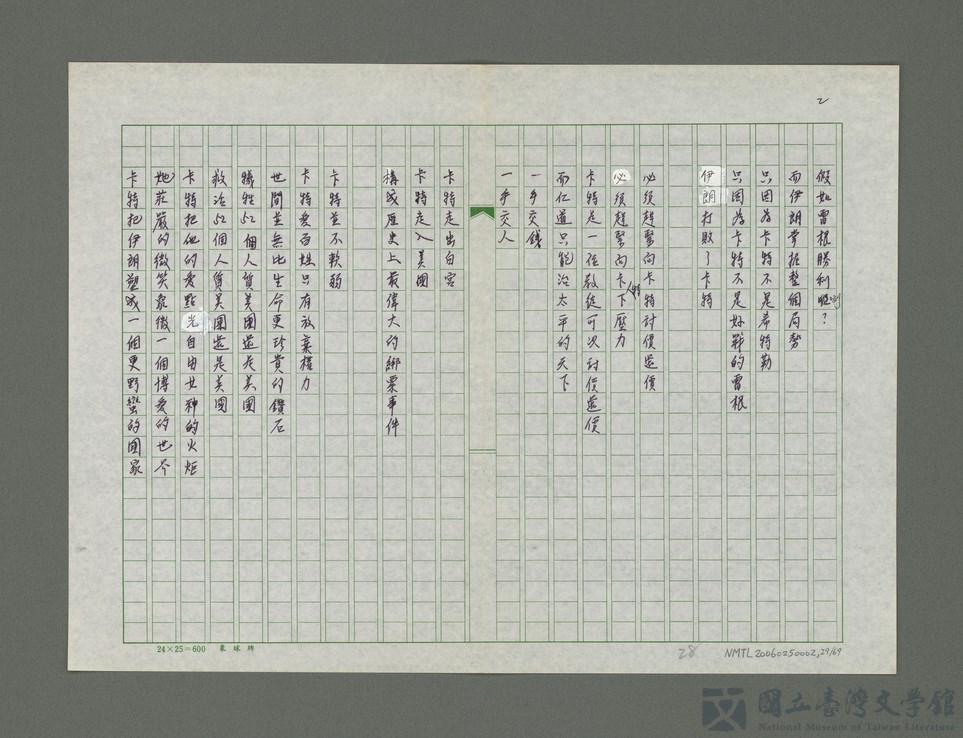 2
假如雷根勝利呢?
而伊朗掌握整個局勢
只因為卡特不是希特勒
只因為卡特不是好戰的雷根
伊朗打敗了卡特
必須趕緊向卡特討價還價
必須趕緊向卡特下壓力
卡特是一位教徒可以討價還價
而仁道只能治太平的天下
一手交錢
一手交人
卡特走出白宮
卡特走入美國
構成歷史上最偉大的綁票事件
卡特並不軟弱
卡特愛百姓只有放棄權力
世間並無比生命更珍貴的鑽石
犧牲52個人質美國還是美國
救治52個人質美國還是美國
卡特把他的愛點光自由女神的火炬
她莊嚴的微笑象徵一個博愛的世界
卡特把伊朗塑成一個更野蠻的國家
24×25=600
28
NMTL20060250002,29/69
國立臺灣文學館
National Museum of Taiwan Literature